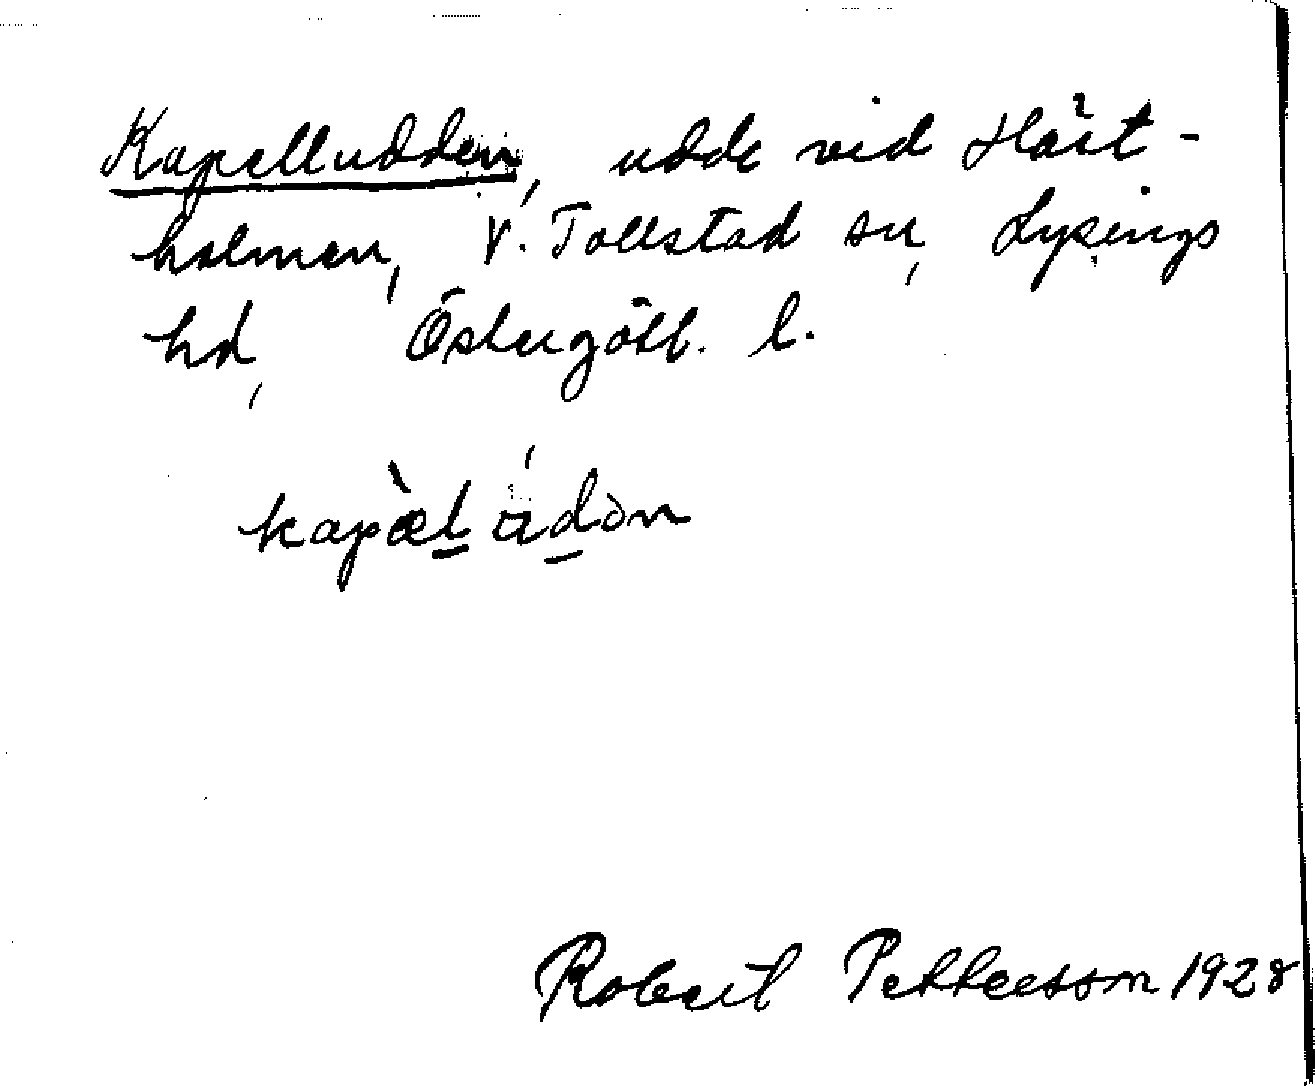 Kapelludden, udde vid Häst-
holmen, V. Tollstad sn, Lysings
hd, Östergötl. l.
Robert Pettersson 1928